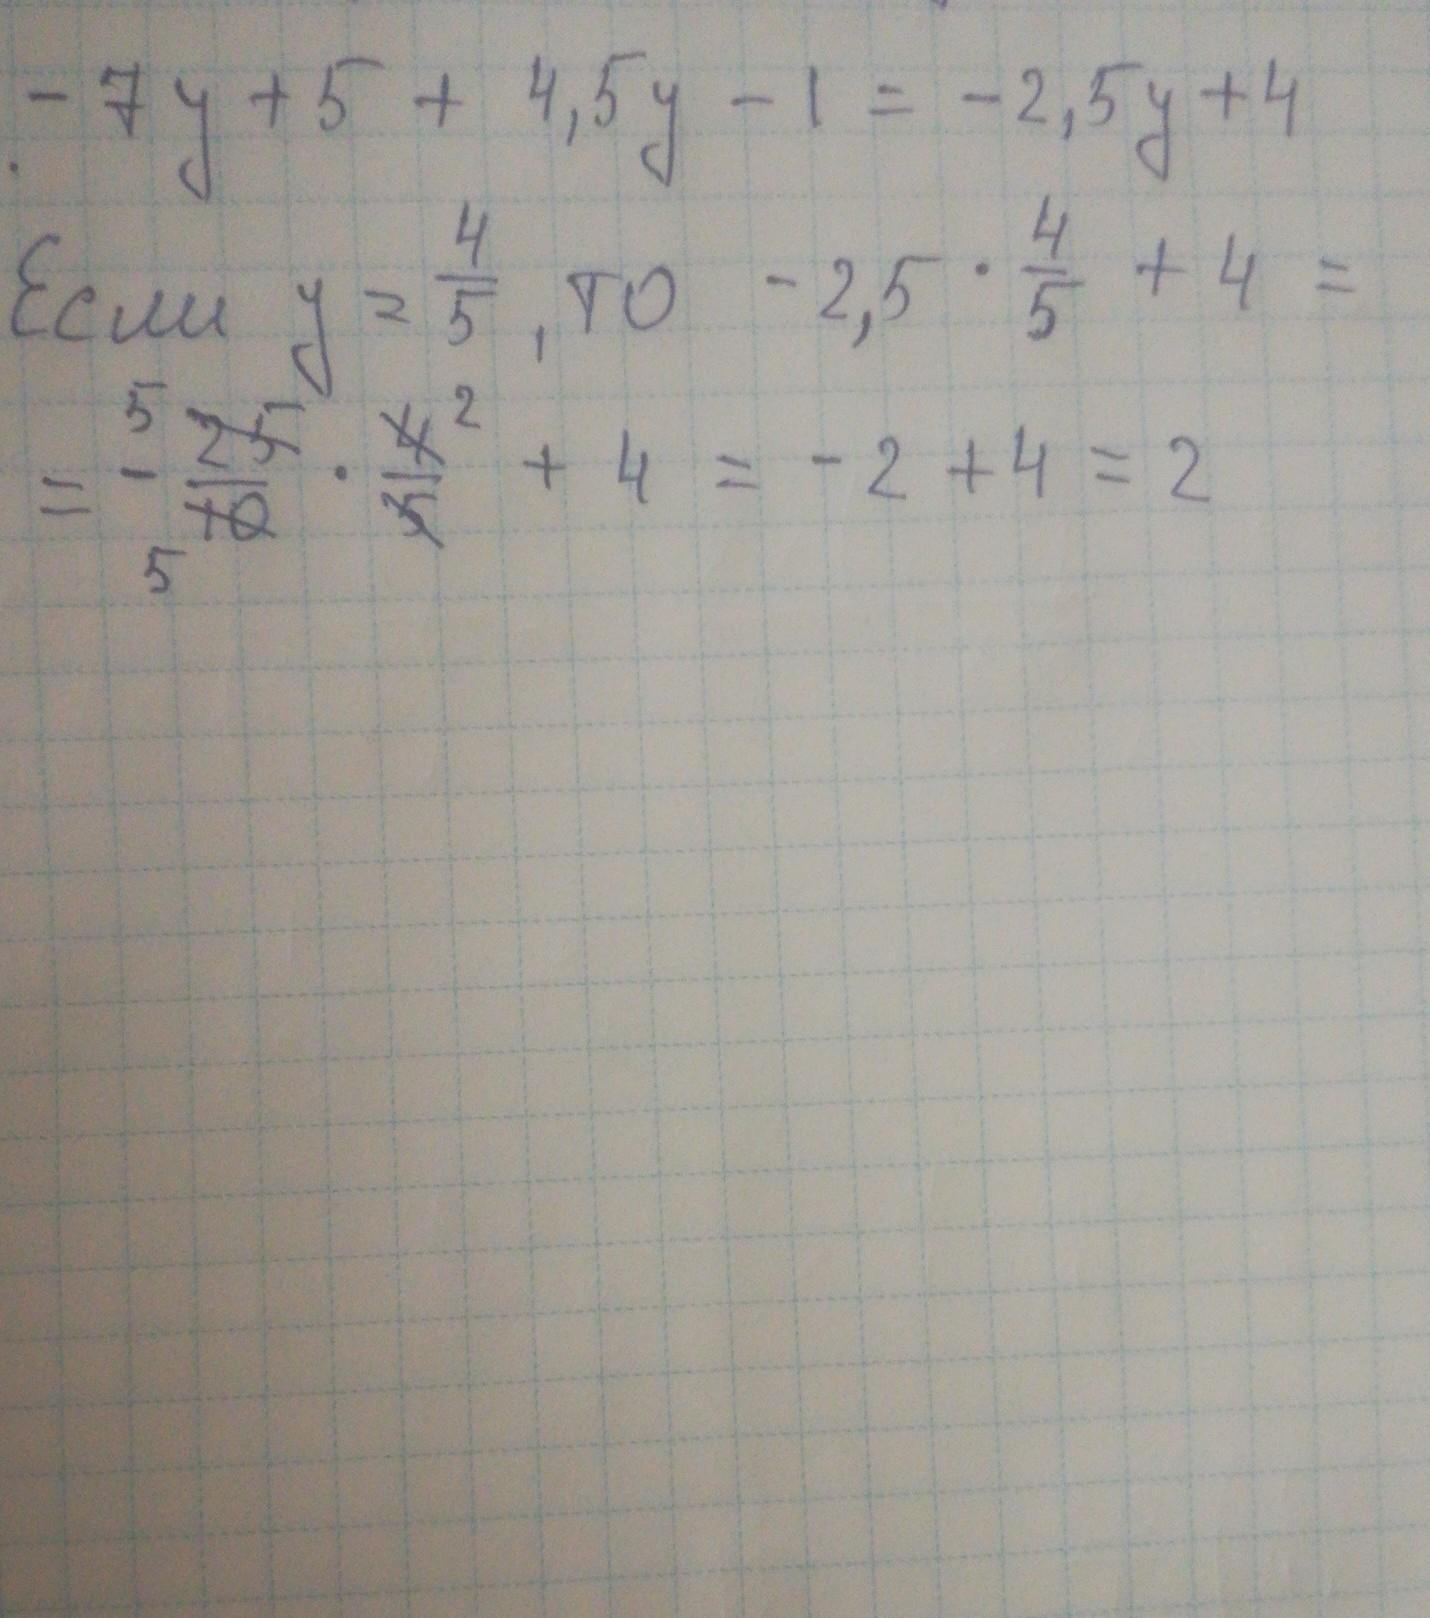 - 7y + 5 + 4,5y - 1 = -2,5y + 4
Если y = 4/5, то -2,5 · 4/5 + 4 =
= - 25/10 · 4/5 + 4 = -2 + 4 = 2
5 2
5